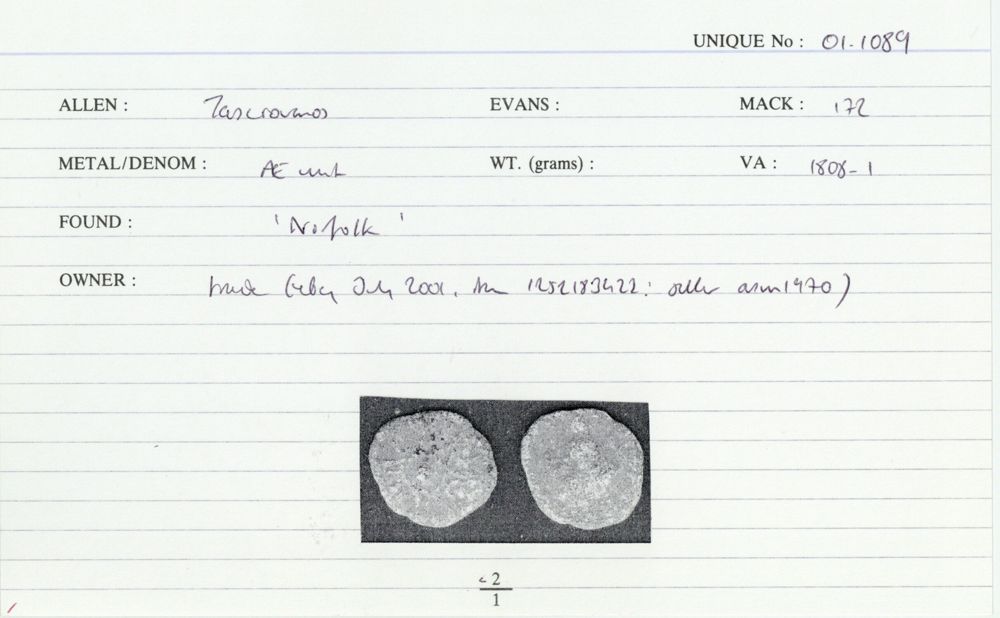 UNIQUE No : 01-1089
ALLEN : Tasciovanos EVANS : MACK : 172
METAL/DENOM : Æ unit WT. (grams) : VA : 1808-1
FOUND : 'Norfolk'
OWNER : trade (eBay July 2001, item 1252183422: seller asm1970)
c 2
1